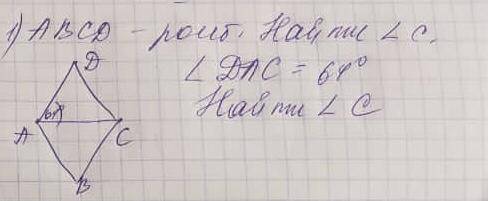 1) ABCD - ромб. Найти ∠C.
∠DAC = 64°
Найти ∠C
D
64
A
C
B